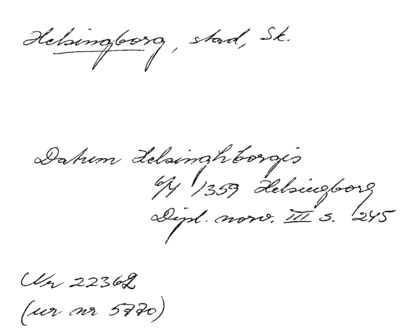 Helsingborg, stad, Sk.
Datum Helsinghborgis
6/4 1359 Helsingborg
Dipl. norv. III s. 245
Nr 22362
(ur nr 5770)